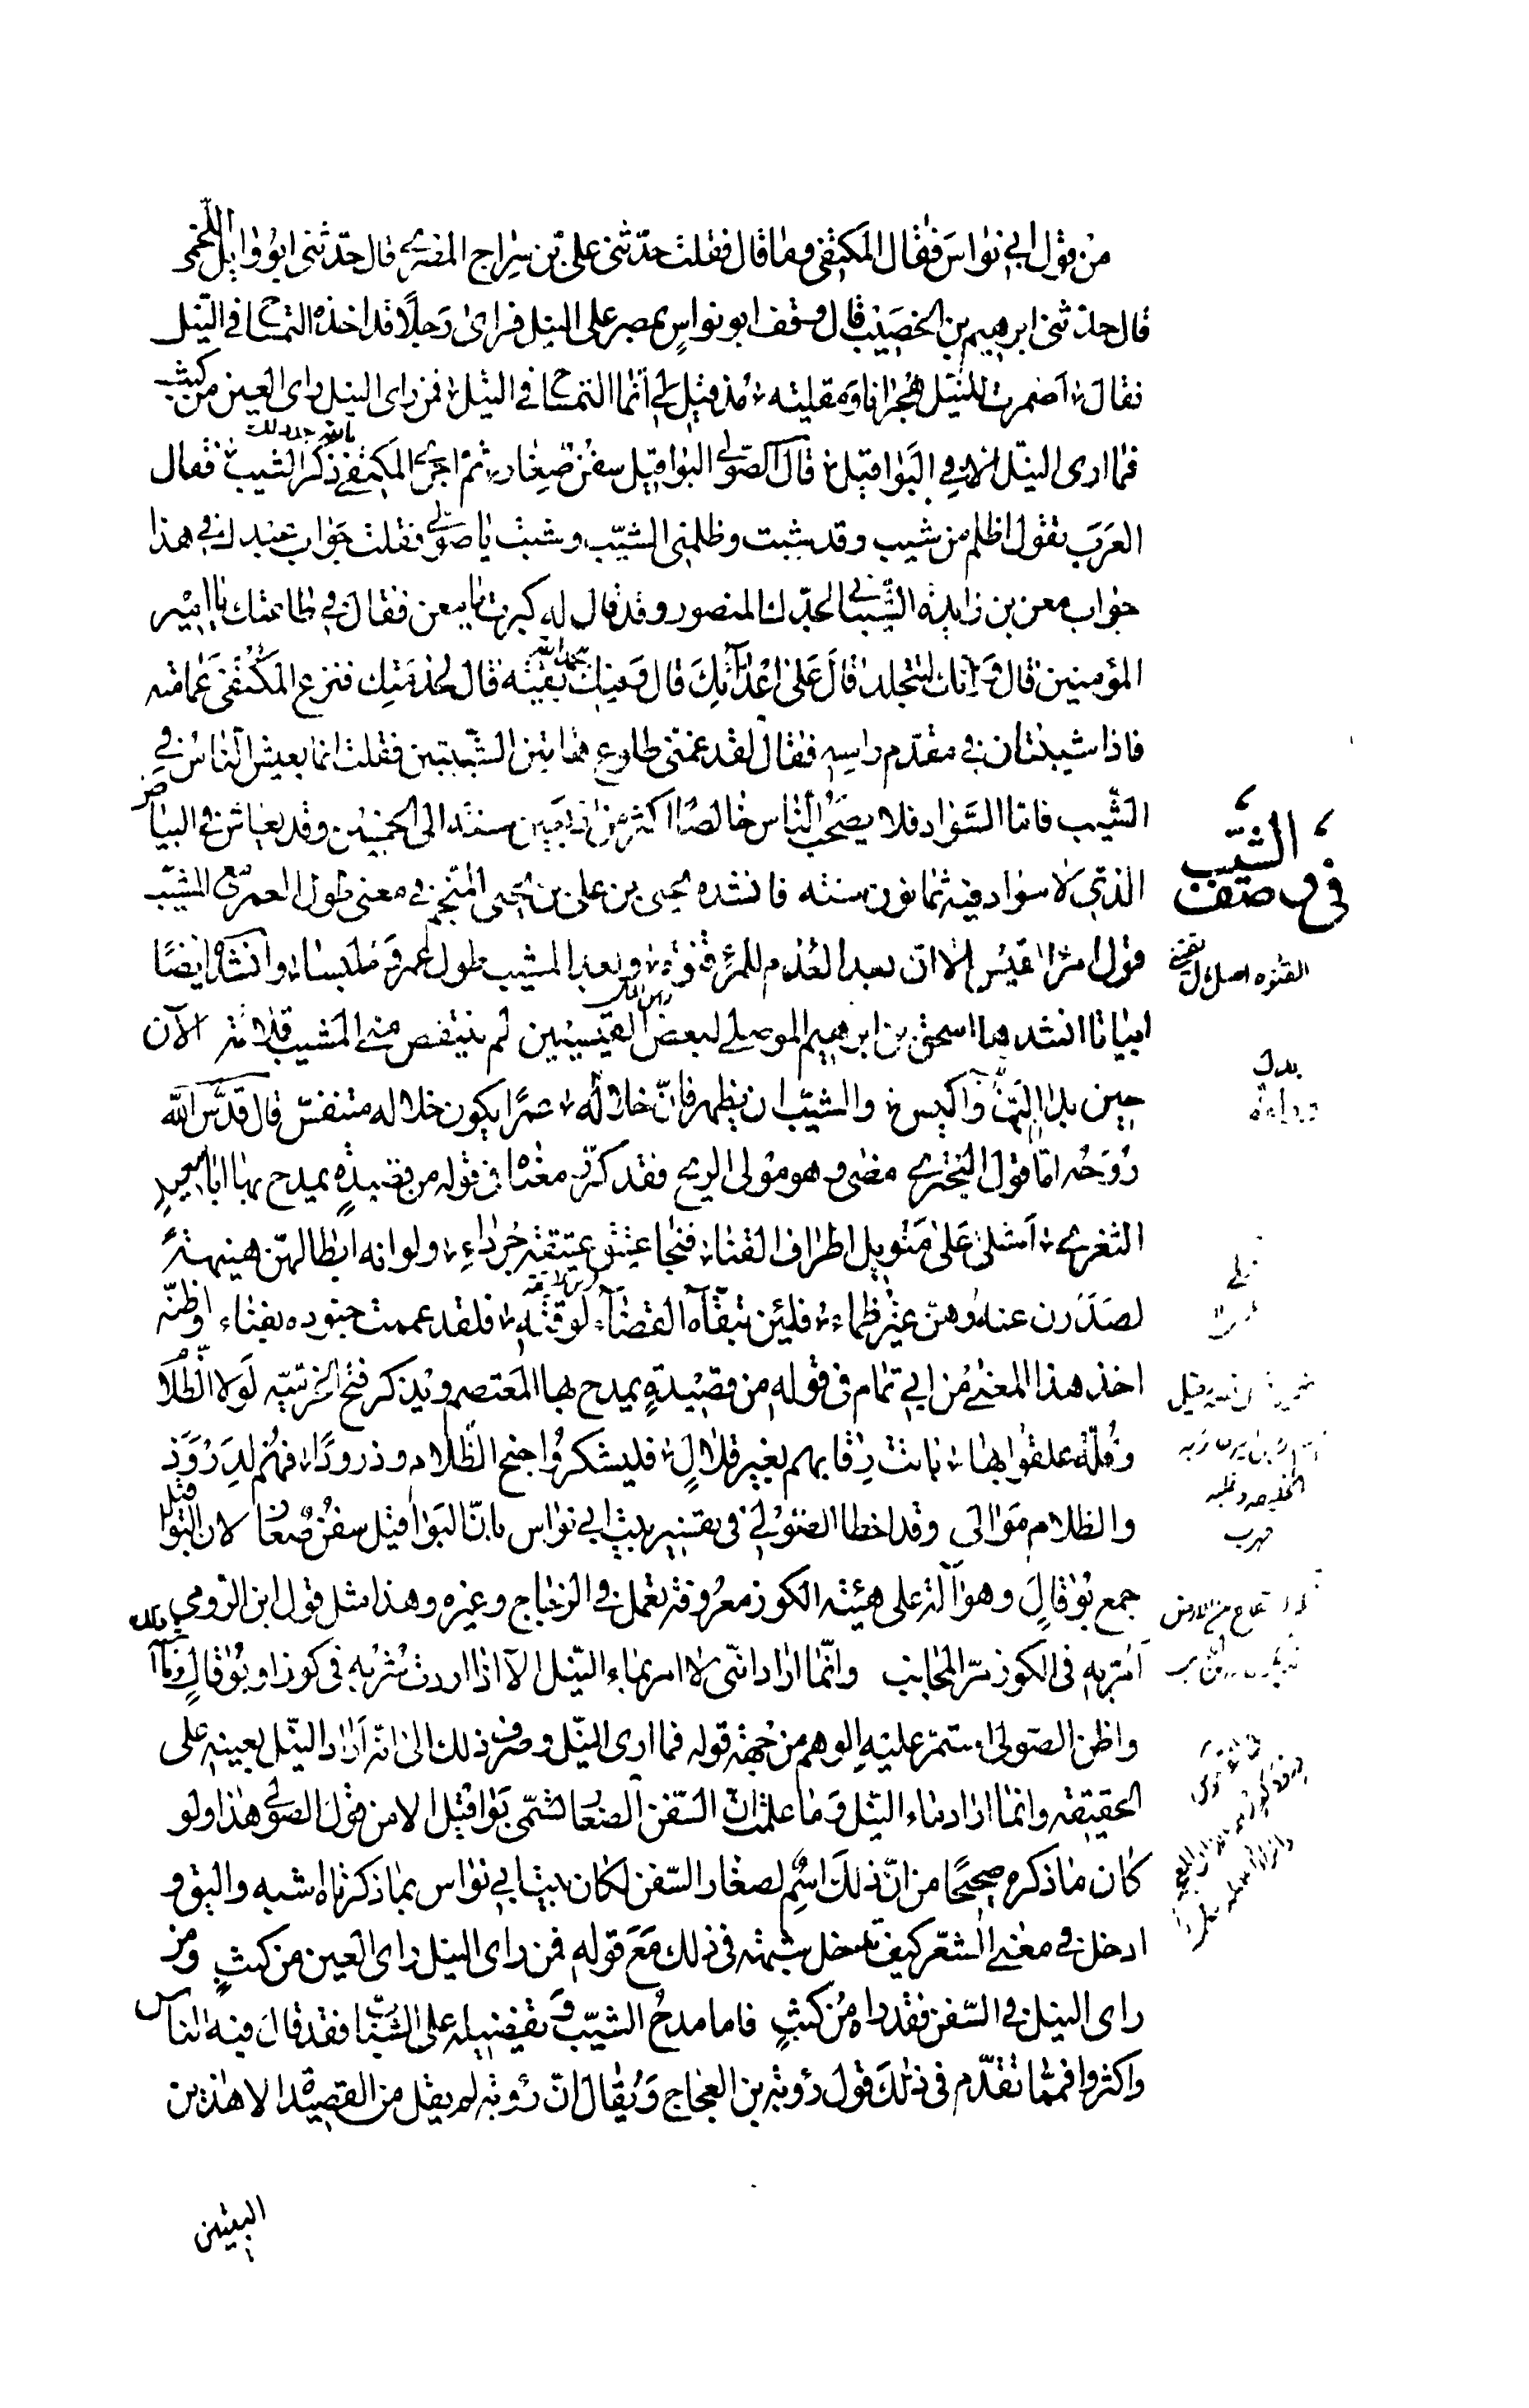 من قول ابي نواس فقال المكتفي وما قال فقلت حدّثني علي بن سراج المصري قال حدّثني ابو وابل اللخمي
قال حدثني ابرهيم بن الخصيب قال وقف ابو نواس بمصر على النيل فراى رجلًا قد اخذه التمساح في النيل
فقال اضمرت للنيل هجرانا ومقليته مذ قيل لي انما التمساح في النيل فمن راى النيل راى العين من كثب
فما ارى النيل الا في البواقيل قال الصولي البواقيل سفن صغار ثم اجرى المكتفي ذكر الشيب فقال
العرب تقول اظلم من شيب وقد شبت وظلمني الشيب وشبت يا صولي فقلت جواب عبدك في هذا
جواب معن بن زايدة الشيباني لجدك المنصور وقد قال له كبرت يا معن فقال في طاعتك يا امير
المؤمنين قال وانك لتتجلد قال على اعدائك قال وفيك بحمد الله بقية قال لخدمتك فنزع المكتفي عمامته
فاذا شيبتان في مقدم راسه فقال لقد غمني طلوع هاتين الشيبتين فقلت انما يعيش الناس في
الشيب فاما السواد فلا يصحب الناس خالصًا اكثر من اربعين سنة الى الخمسين وقد يعاش في البياض
الذي لا سواد فيه ثمانون سنة فانشده يحيى بن علي بن يحيى المنجم في معنى طول العمر مع المشيب
قول امرء القيس الا ان بعد العدم للمرء قنوة وبعد المشيب طول عمر وملبسا وانشده ايضًا
ابياتا انشدها اسحق بن ابرهيم الموصلي لبعض القيسيين لم ينتقص مني المشيب قلامة الآن
حين بدا الب واكيس والشيب ان يظهر فان خلاله عمرًا يكون خلاله متنفس قال قدس الله
روحه امّا قول البحتري مضى وهو مولى الريح فقد كرّر معناه في قوله من قصيدةٍ يمدح بها ابا سعيدٍ
الثغري اشلى على منويل اطراف القنا فنجا عتيق عتيقة جرداءِ ولو انه ابطا لهن هنيهة
لصدرن عنه وهن غير ظماء فلئن تبقاه القضاء لوقته فلقد عممت جنوده بفناء واظنه
اخذ هذا المعنى من ابي تمام في قوله من قصيدةٍ يمدح بها المعتصم ويذكر فتح الخرّميّه لولا الظلام
وقلة علقوا بها باتت رقابهم بغير قلالٍ فليشكروا جنح الظلام وذرودًا فهم لدرود
والظلام موالى وقد اخطا الصولي في تفسير بيت ابي نواس بان البواقيل سفن صغار لان البواقيل
جمع بوقالٍ وهو آلة على هيئة الكوز معروفة تعمل في الزجاج وغيره وهذا مثل قول ابن الرومي
اشربه في الكوز مرّ المجانب وانما اراد انني لا امر بماء النيل الا اذا اردت شربه في كوز او بوقالٍ
واظن الصولي استمر عليه الوهم من جهة قوله فما ارى النيل وصرف ذلك الى انه اراد النيل بعينه على
الحقيقة وانما اراد ماء النيل وما علمت ان السفن الصغار تسمّى بواقيل الا من قول الصولي هذا ولو
كان ما ذكره صحيحًا من ان ذلك اسم لصغار السفن لكان بيت ابي نواس بما ذكرناه اشبه واليق و
ادخل في معنى الشعر كيف تدخل شبهة في ذلك مع قوله فمن راى النيل راى العين من كثبٍ ومن
راى النيل في السفن فقد راه من كثبٍ فاما مدح الشيب وتفضيله على الشباب فقد قال فيه الناس
واكثروا فمما تقدّم في ذلك قول رؤبة بن العجاج ويقال ان رؤبة لم يقل من القصيد الا هذين
البيتين
في وصف
الشيب
القنوه اصل المال